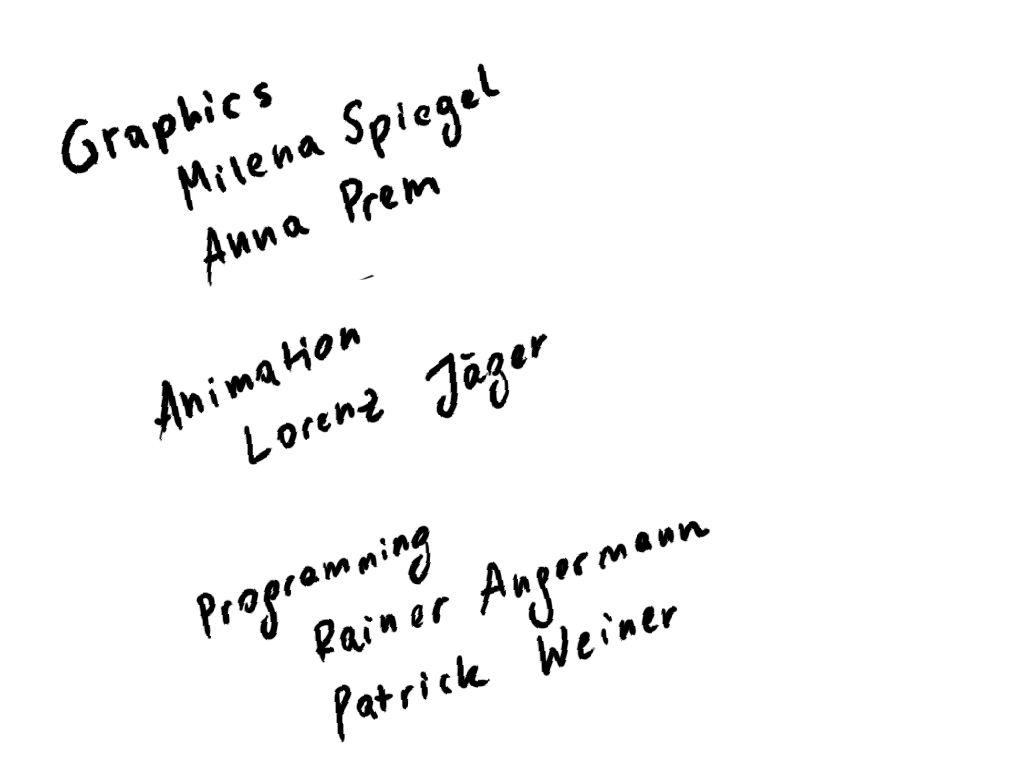 Graphics
Milena Spiegel
Anna Prem
Animation
Lorenz Jäger
Programming
Rainer Angermann
Patrick Weiner